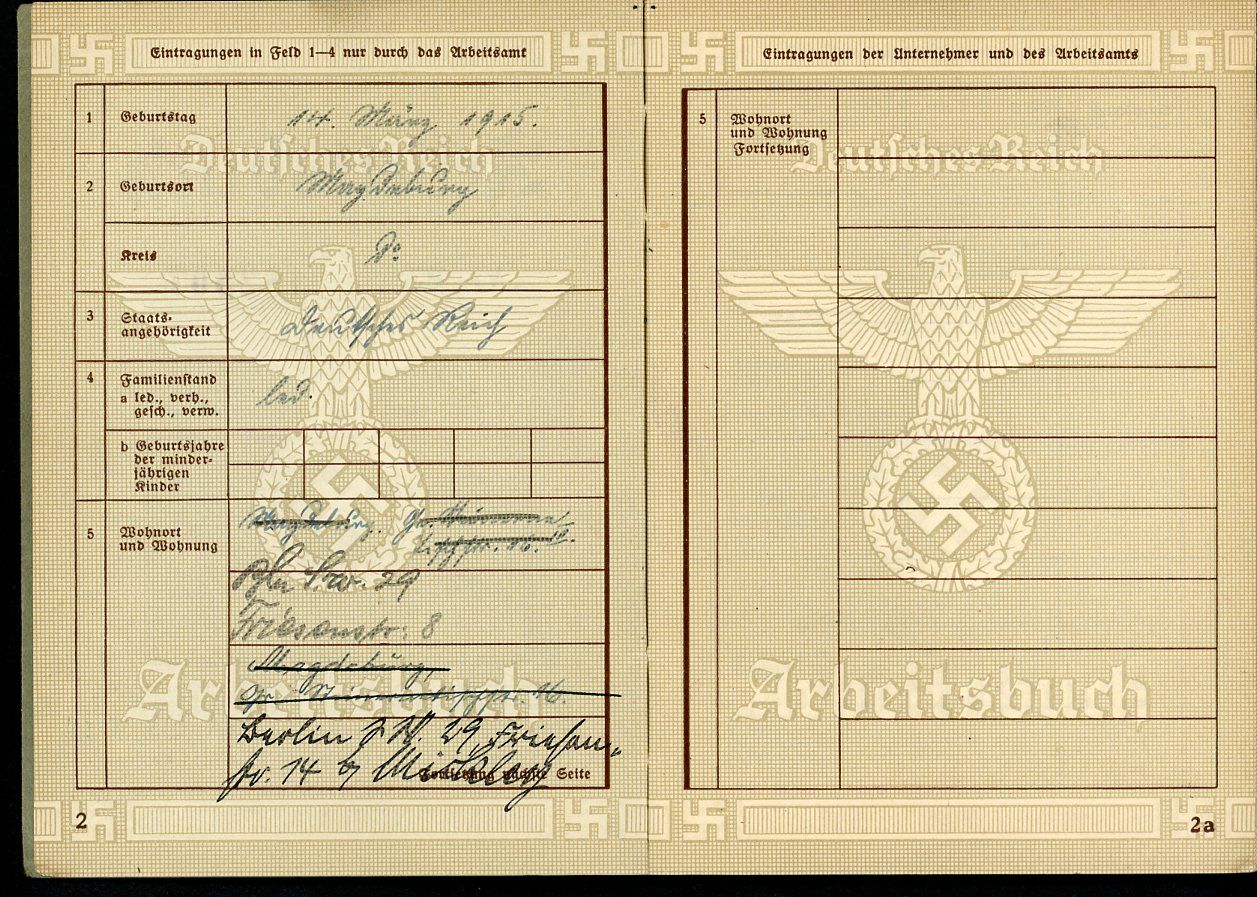 Eintragungen in Feld 1—4 nur durch das Arbeitsamt
Deutsches Reich
1 Geburtstag 14. März 1915.
2 Geburtsort Magdeburg
Kreis do
3 Staats-
angehörigkeit Deutsches Reich
4 Familienstand
a led., verh.,
gesch., verw. led.
b Geburtsjahre
der minder-
jährigen
Kinder
5 Wohnort
und Wohnung
Magdeburg. Gr.
16.
Bln S.W. 29
Friesenstr. 8
Magdeburg,
Gr. 16.
Berlin S.W. 29, Friesen-
str. 14 b/
Fortsetzung nächste Seite
Arbeitsbuch
2
Eintragungen der Unternehmer und des Arbeitsamts
Deutsches Reich
5 Wohnort
und Wohnung
Fortsetzung
Arbeitsbuch
2a